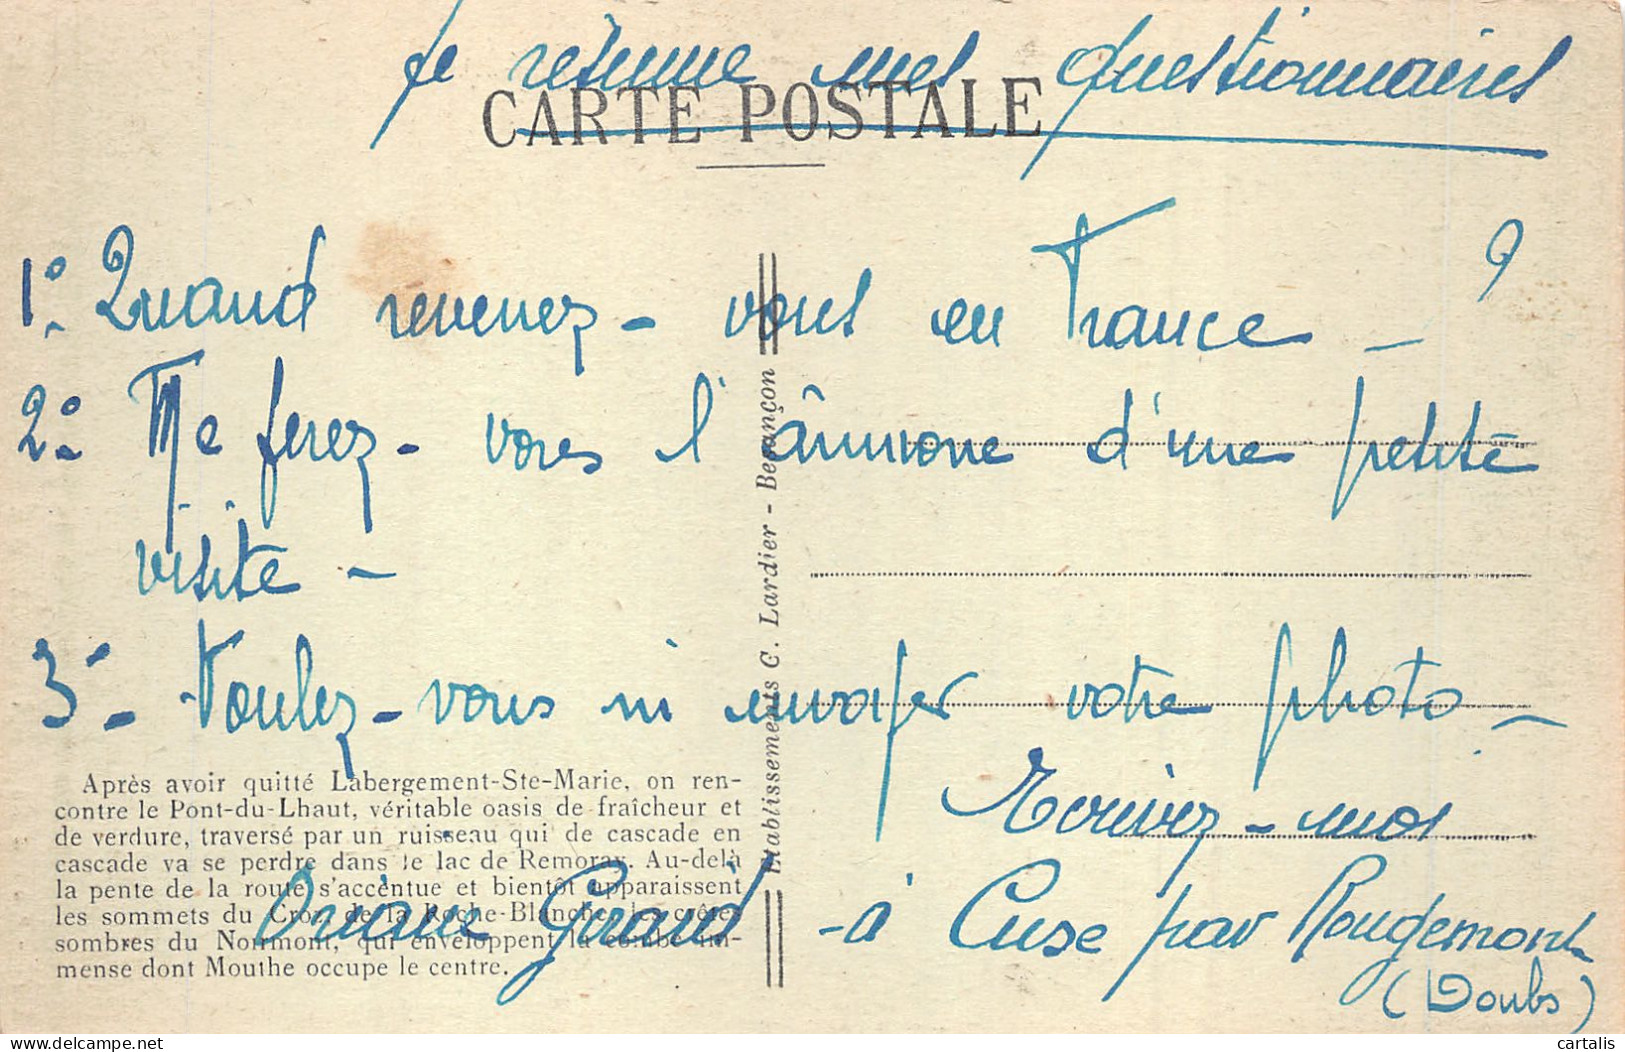 Je résume mes questionnaires
CARTE POSTALE
1° Quand revenez-vous en France - ?
2° Me ferez-vous l'aumône d'une petite
visite -
3- Voulez-vous m'envoyer votre photo -
Ecrivez-moi
à Cuse par Rougemont
(Doubs)
Giraud
Après avoir quitté Labergement-Ste-Marie, on ren-
contre le Pont-du-Lhaut, véritable oasis de fraîcheur et
de verdure, traversé par un ruisseau qui de cascade en
cascade va se perdre dans le lac de Remoray. Au-delà
la pente de la route s'accentue et bientôt apparaissent
les sommets du Croz de la Roche-Blanche, les crêtes
sombres du Noirmont, qui enveloppent la combe im-
mense dont Mouthe occupe le centre.
Etablissements C. Lardier - Besançon
cartalis